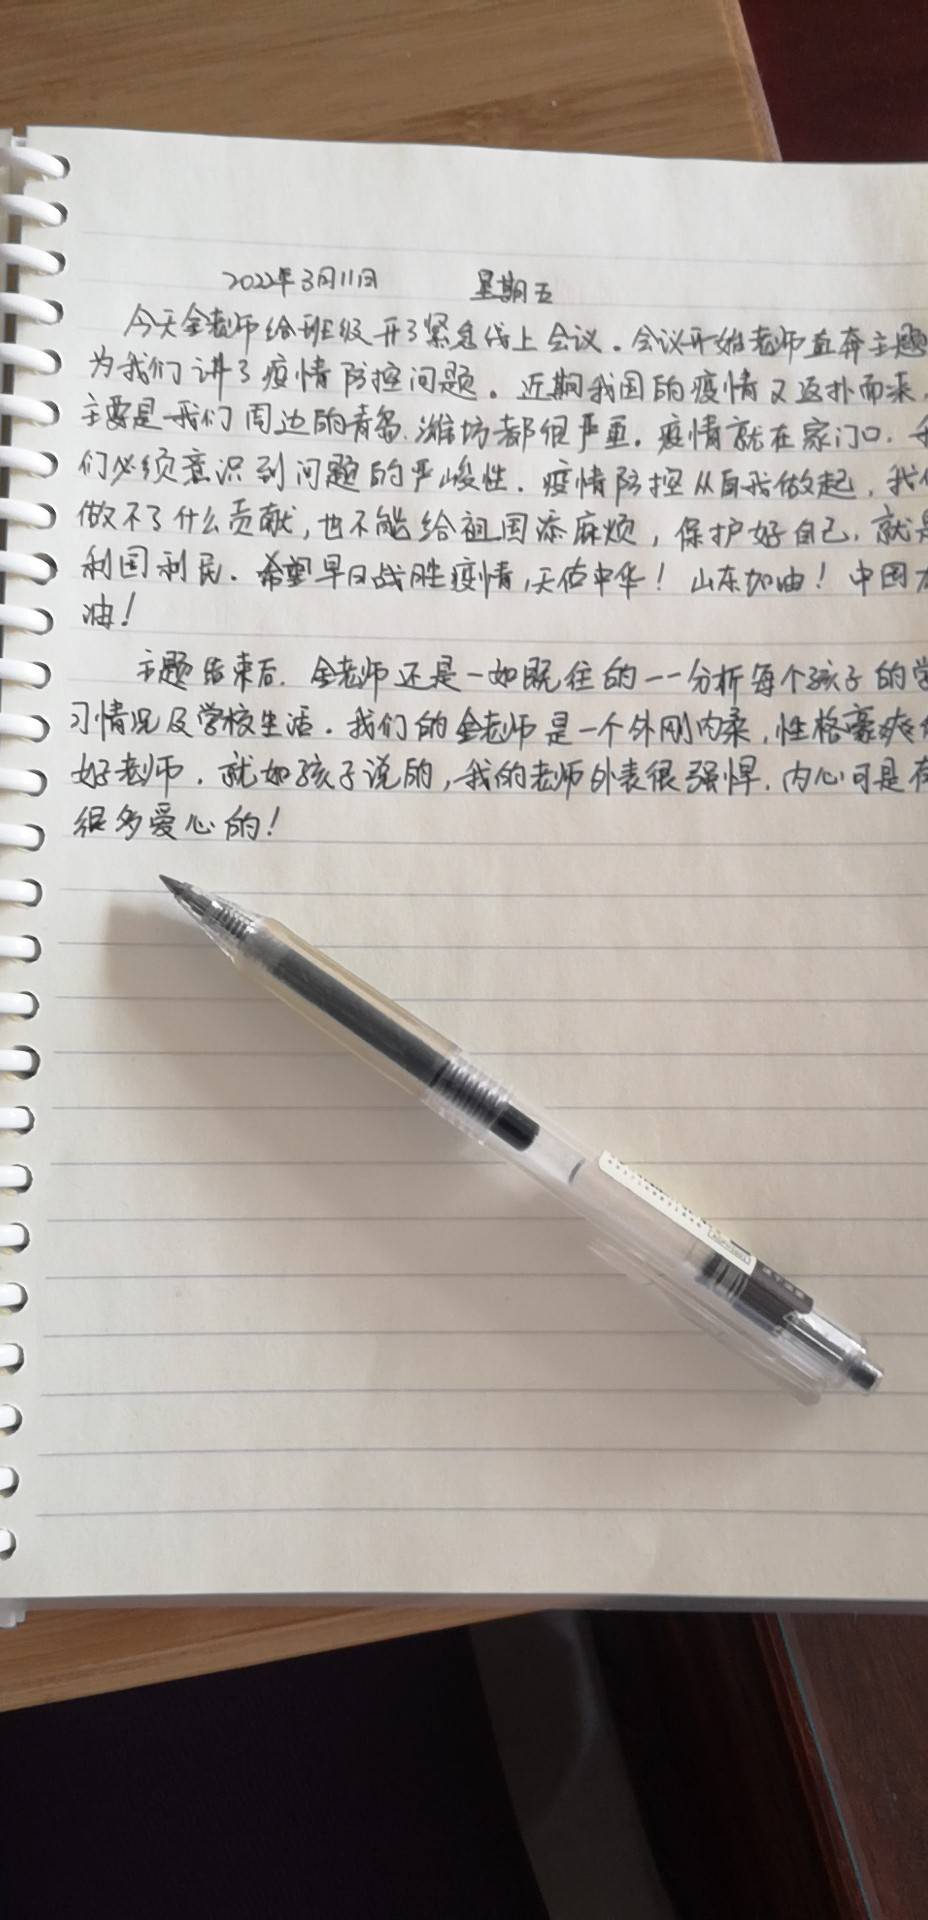 2022年3月11日 星期五
今天金老师给班级开了紧急线上会议。会议开始老师直奔主题
为我们讲了疫情防控问题。近期我国的疫情又返扑而来,
主要是我们周边的青岛.潍坊都很严重.疫情就在家门口.我
们必须意识到问题的严峻性.疫情防控从自我做起,我们
做不了什么贡献,也不能给祖国添麻烦,保护好自己,就是
利国利民.希望早日战胜疫情,天佑中华!山东加油!中国加
油!
主题结束后.金老师还是一如既往的一一分析每个孩子的学
习情况及学校生活.我们的金老师是一个外刚内柔,性格豪爽的
好老师.就如孩子说的,我的老师外表很强悍.内心可是有
很多爱心的!